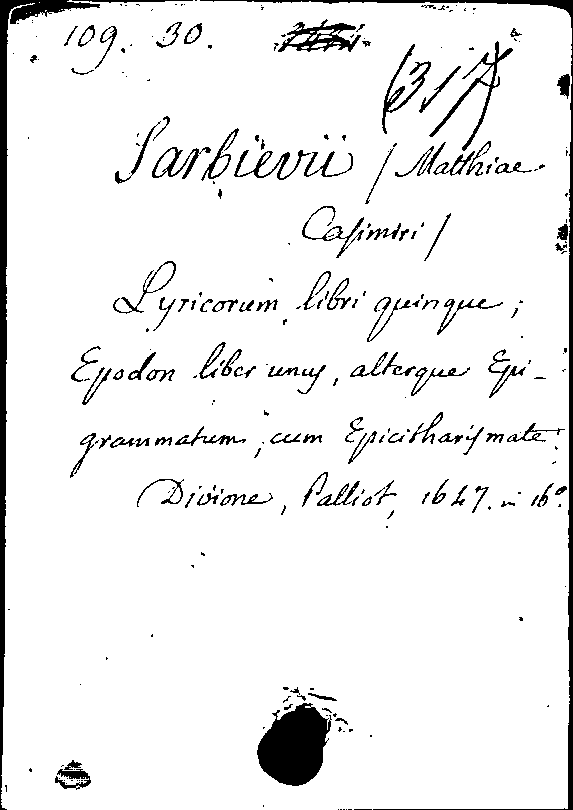 109. 30.
(317)
Sarbievii / Matthiae
Casimiri /
Lyricorum libri quinque ;
Epodon liber unus, alterque Epi-
grammatum, cum Epicitharismate.
Divione, Palliot, 1647. in 16°.